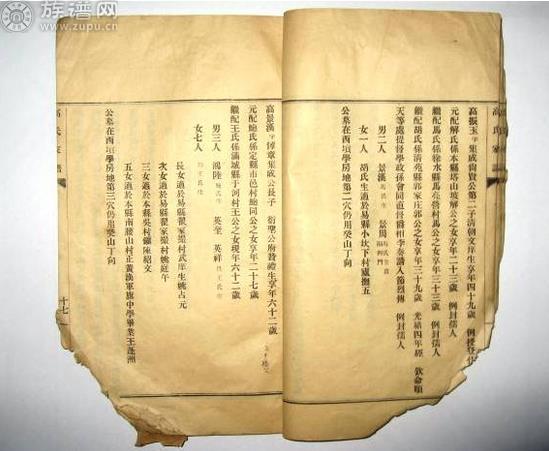 族谱网
www.zupu.cn
高氏家譜
高振玉字集成尙賓公第二子清朝文庠生享年四十九歲 例授登仕
元配解氏係本縣塔山坡解公之女享年二十三歲 例封孺人
繼配馬氏係徐水縣馬亮營村馬公之女享年三十三歲 例封孺人
繼配胡氏係清苑縣郭家庄郭公之女享年三十九歲 光緒四年經 欽命順
天等處提督學政孫會同直督李奏請入節烈傳 例封孺人
男二人 景漢 馬氏生 景周
女一人 胡氏生適於易縣小坎下村盧撫五
公墓在西垣學房地第二穴仍用癸山丁向
高景漢字倬章集成公長子 衍聖公府贊禮生享年六十二歲
元配鮑氏係定縣市邑村鮑同公之女享年二十七歲
繼配王氏係滿城縣于河村王公之女現年六十二歲
男三人 鴻陸 鮑氏生 英奎 英祥 俱王氏生
女七人 俱王氏生
長女適於易縣翟家撮村武庠生姚占元
次女適於易縣翟家撮村姚庭午
三女適於本縣吳村鎭陳紹文
五女適於本縣南腰山村正黃漢軍旗中學畢業王蓬洲
公墓在西垣學房地第三穴仍用癸山丁向
高氏家譜
十七